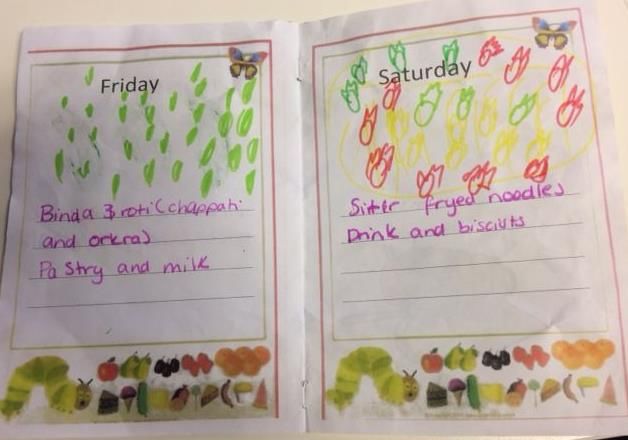 Friday
Binda & roti (chappati
and orkra)
Pastry and milk
Saturday
Sitter fryed noodles
Drink and biscuits